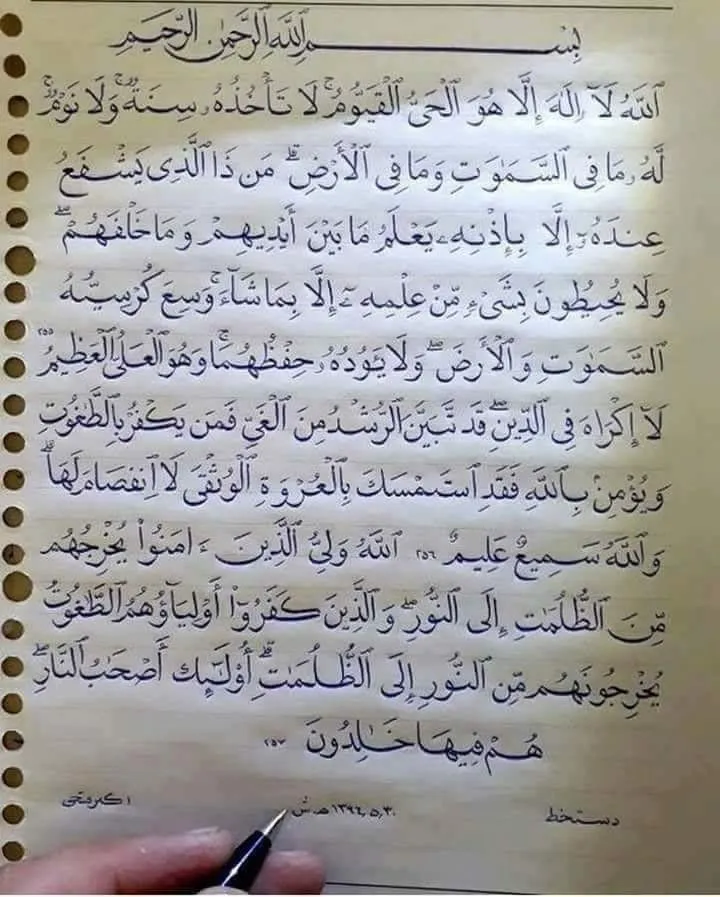 بِسْمِ ٱللَّهِ ٱلرَّحْمَٰنِ ٱلرَّحِيمِ
ٱللَّهُ لَآ إِلَٰهَ إِلَّا هُوَ ٱلْحَىُّ ٱلْقَيُّومُ ۚ لَا تَأْخُذُهُۥ سِنَةٌ وَلَا نَوْمٌ ۚ
لَّهُۥ مَا فِى ٱلسَّمَٰوَٰتِ وَمَا فِى ٱلْأَرْضِ ۗ مَن ذَا ٱلَّذِى يَشْفَعُ
عِندَهُۥٓ إِلَّا بِإِذْنِهِۦ ۚ يَعْلَمُ مَا بَيْنَ أَيْدِيهِمْ وَمَا خَلْفَهُمْ ۖ
وَلَا يُحِيطُونَ بِشَىْءٍ مِّنْ عِلْمِهِۦٓ إِلَّا بِمَا شَآءَ ۚ وَسِعَ كُرْسِيُّهُ
ٱلسَّمَٰوَٰتِ وَٱلْأَرْضَ ۖ وَلَا يَـُٔودُهُۥ حِفْظُهُمَا ۚ وَهُوَ ٱلْعَلِىُّ ٱلْعَظِيمُ ٢٥٥
لَآ إِكْرَاهَ فِى ٱلدِّينِ ۖ قَد تَّبَيَّنَ ٱلرُّشْدُ مِنَ ٱلْغَىِّ ۚ فَمَن يَكْفُرْ بِٱلطَّٰغُوتِ
وَيُؤْمِنۢ بِٱللَّهِ فَقَدِ ٱسْتَمْسَكَ بِٱلْعُرْوَةِ ٱلْوُثْقَىٰ لَا ٱنفِصَامَ لَهَا ۗ
وَٱللَّهُ سَمِيعٌ عَلِيمٌ ٢٥٦ ٱللَّهُ وَلِىُّ ٱلَّذِينَ ءَامَنُوا۟ يُخْرِجُهُم
مِّنَ ٱلظُّلُمَٰتِ إِلَى ٱلنُّورِ ۖ وَٱلَّذِينَ كَفَرُوٓا۟ أَوْلِيَآؤُهُمُ ٱلطَّٰغُوتُ
يُخْرِجُونَهُم مِّنَ ٱلنُّورِ إِلَى ٱلظُّلُمَٰتِ ۗ أُو۟لَٰٓئِكَ أَصْحَٰبُ ٱلنَّارِ ۖ
هُمْ فِيهَا خَٰلِدُونَ ٢٥٧
دستخط ١٣٩٤٫٥٫٣٠ هـ ش